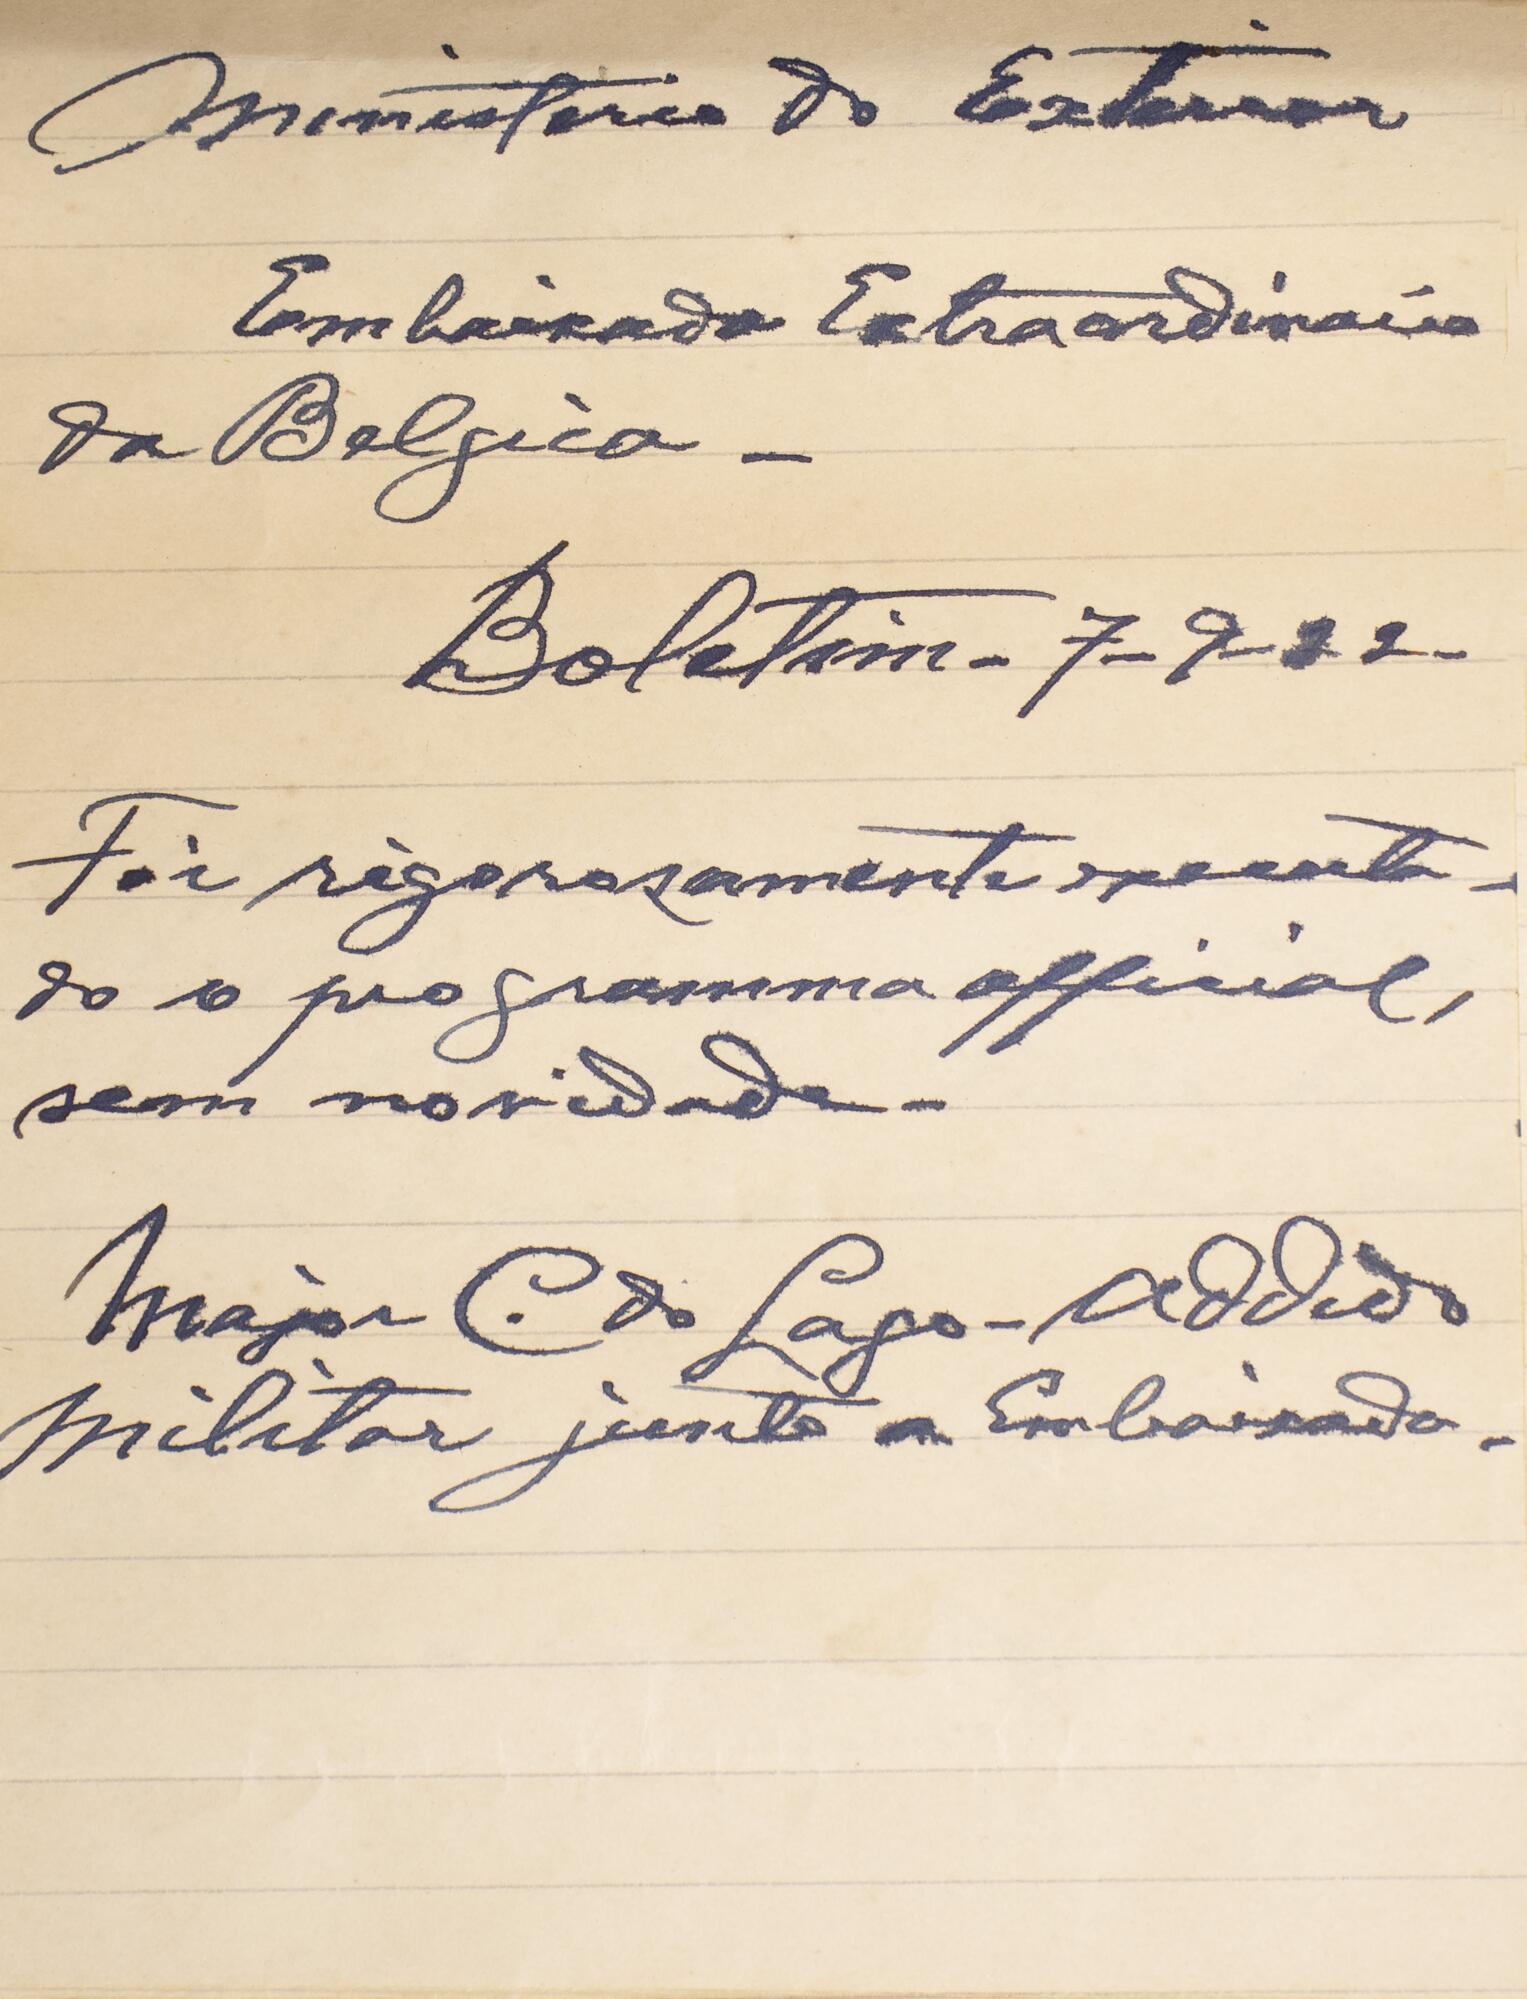 Ministerio do Exterior
Embaixada Extraordinaria
da Belgica -
Boletim - 7-9-22-
Foi rigorosamente executa-
do o programma official,
sem novidade -
Major C. do Lago - Addido
Militar junto a Embaixada.